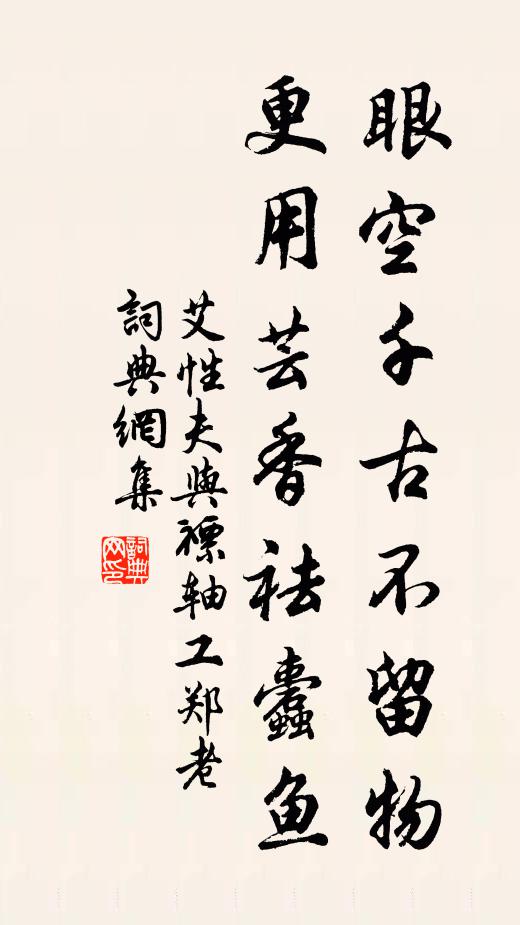 眼空千古不留物
更用芸香祛蠹鱼
艾性夫與褾轴工郑老
詞典網集
詞典网印